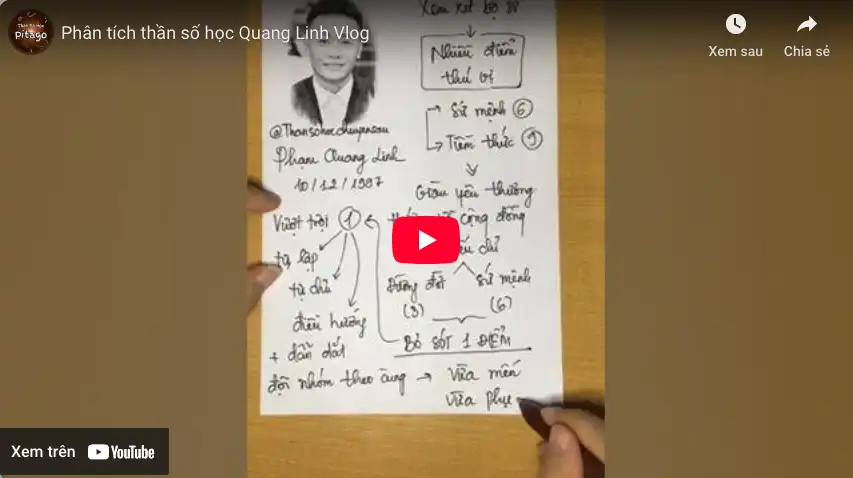 Thần Số Học
Pitago
Phân tích thần số học Quang Linh Vlog
Xem sau
Chia sẻ
Xem xét bộ số
Nhiều điểm
thú vị
Sứ mệnh 6
Tiềm thức 9
@Thansohocchuyensau
Phạm Quang Linh
10/12/1997
Giàu yêu thương
cộng đồng
chỉ
Vượt trội 1
tự lập
tự chủ
điều hướng
+ dẫn dắt
đội nhóm theo cùng → Vừa mến
Vừa phục
Đường đời
(3)
Sứ mệnh
(6)
BỎ SÓT 1 ĐIỂM
Xem trên YouTube